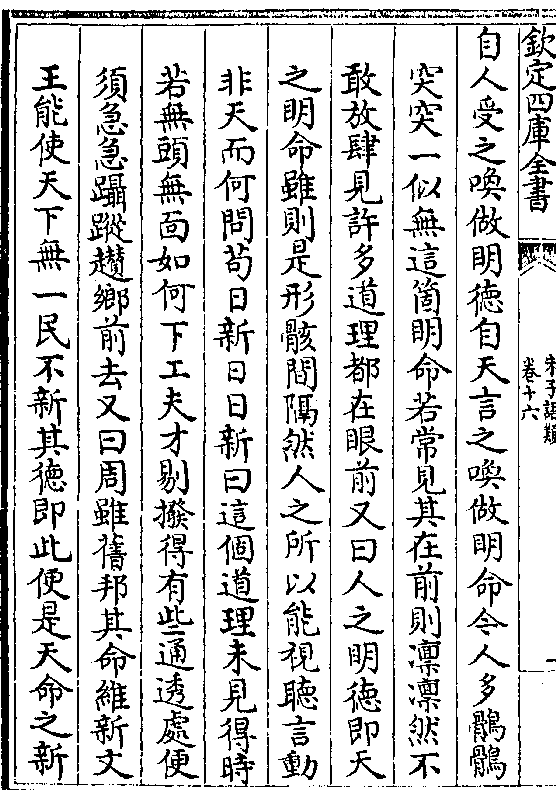 欽定四庫全書
朱子語類
卷十六
自人受之喚做明徳自天言之喚做明命今人多鶻鶻
突突一似無這箇明命若常見其在前則凛凛然不
敢放肆見許多道理都在眼前又曰人之明徳即天
之明命雖則是形骸間隔然人之所以能視聽言動
非天而何問茍日新日日新曰這個道理未見得時
若無頭無面如何下工夫才剔撥得有些通透處便
須急急躡蹤趲鄉前去又曰周雖舊邦其命維新文
王能使天下無一民不新其徳即此便是天命之新